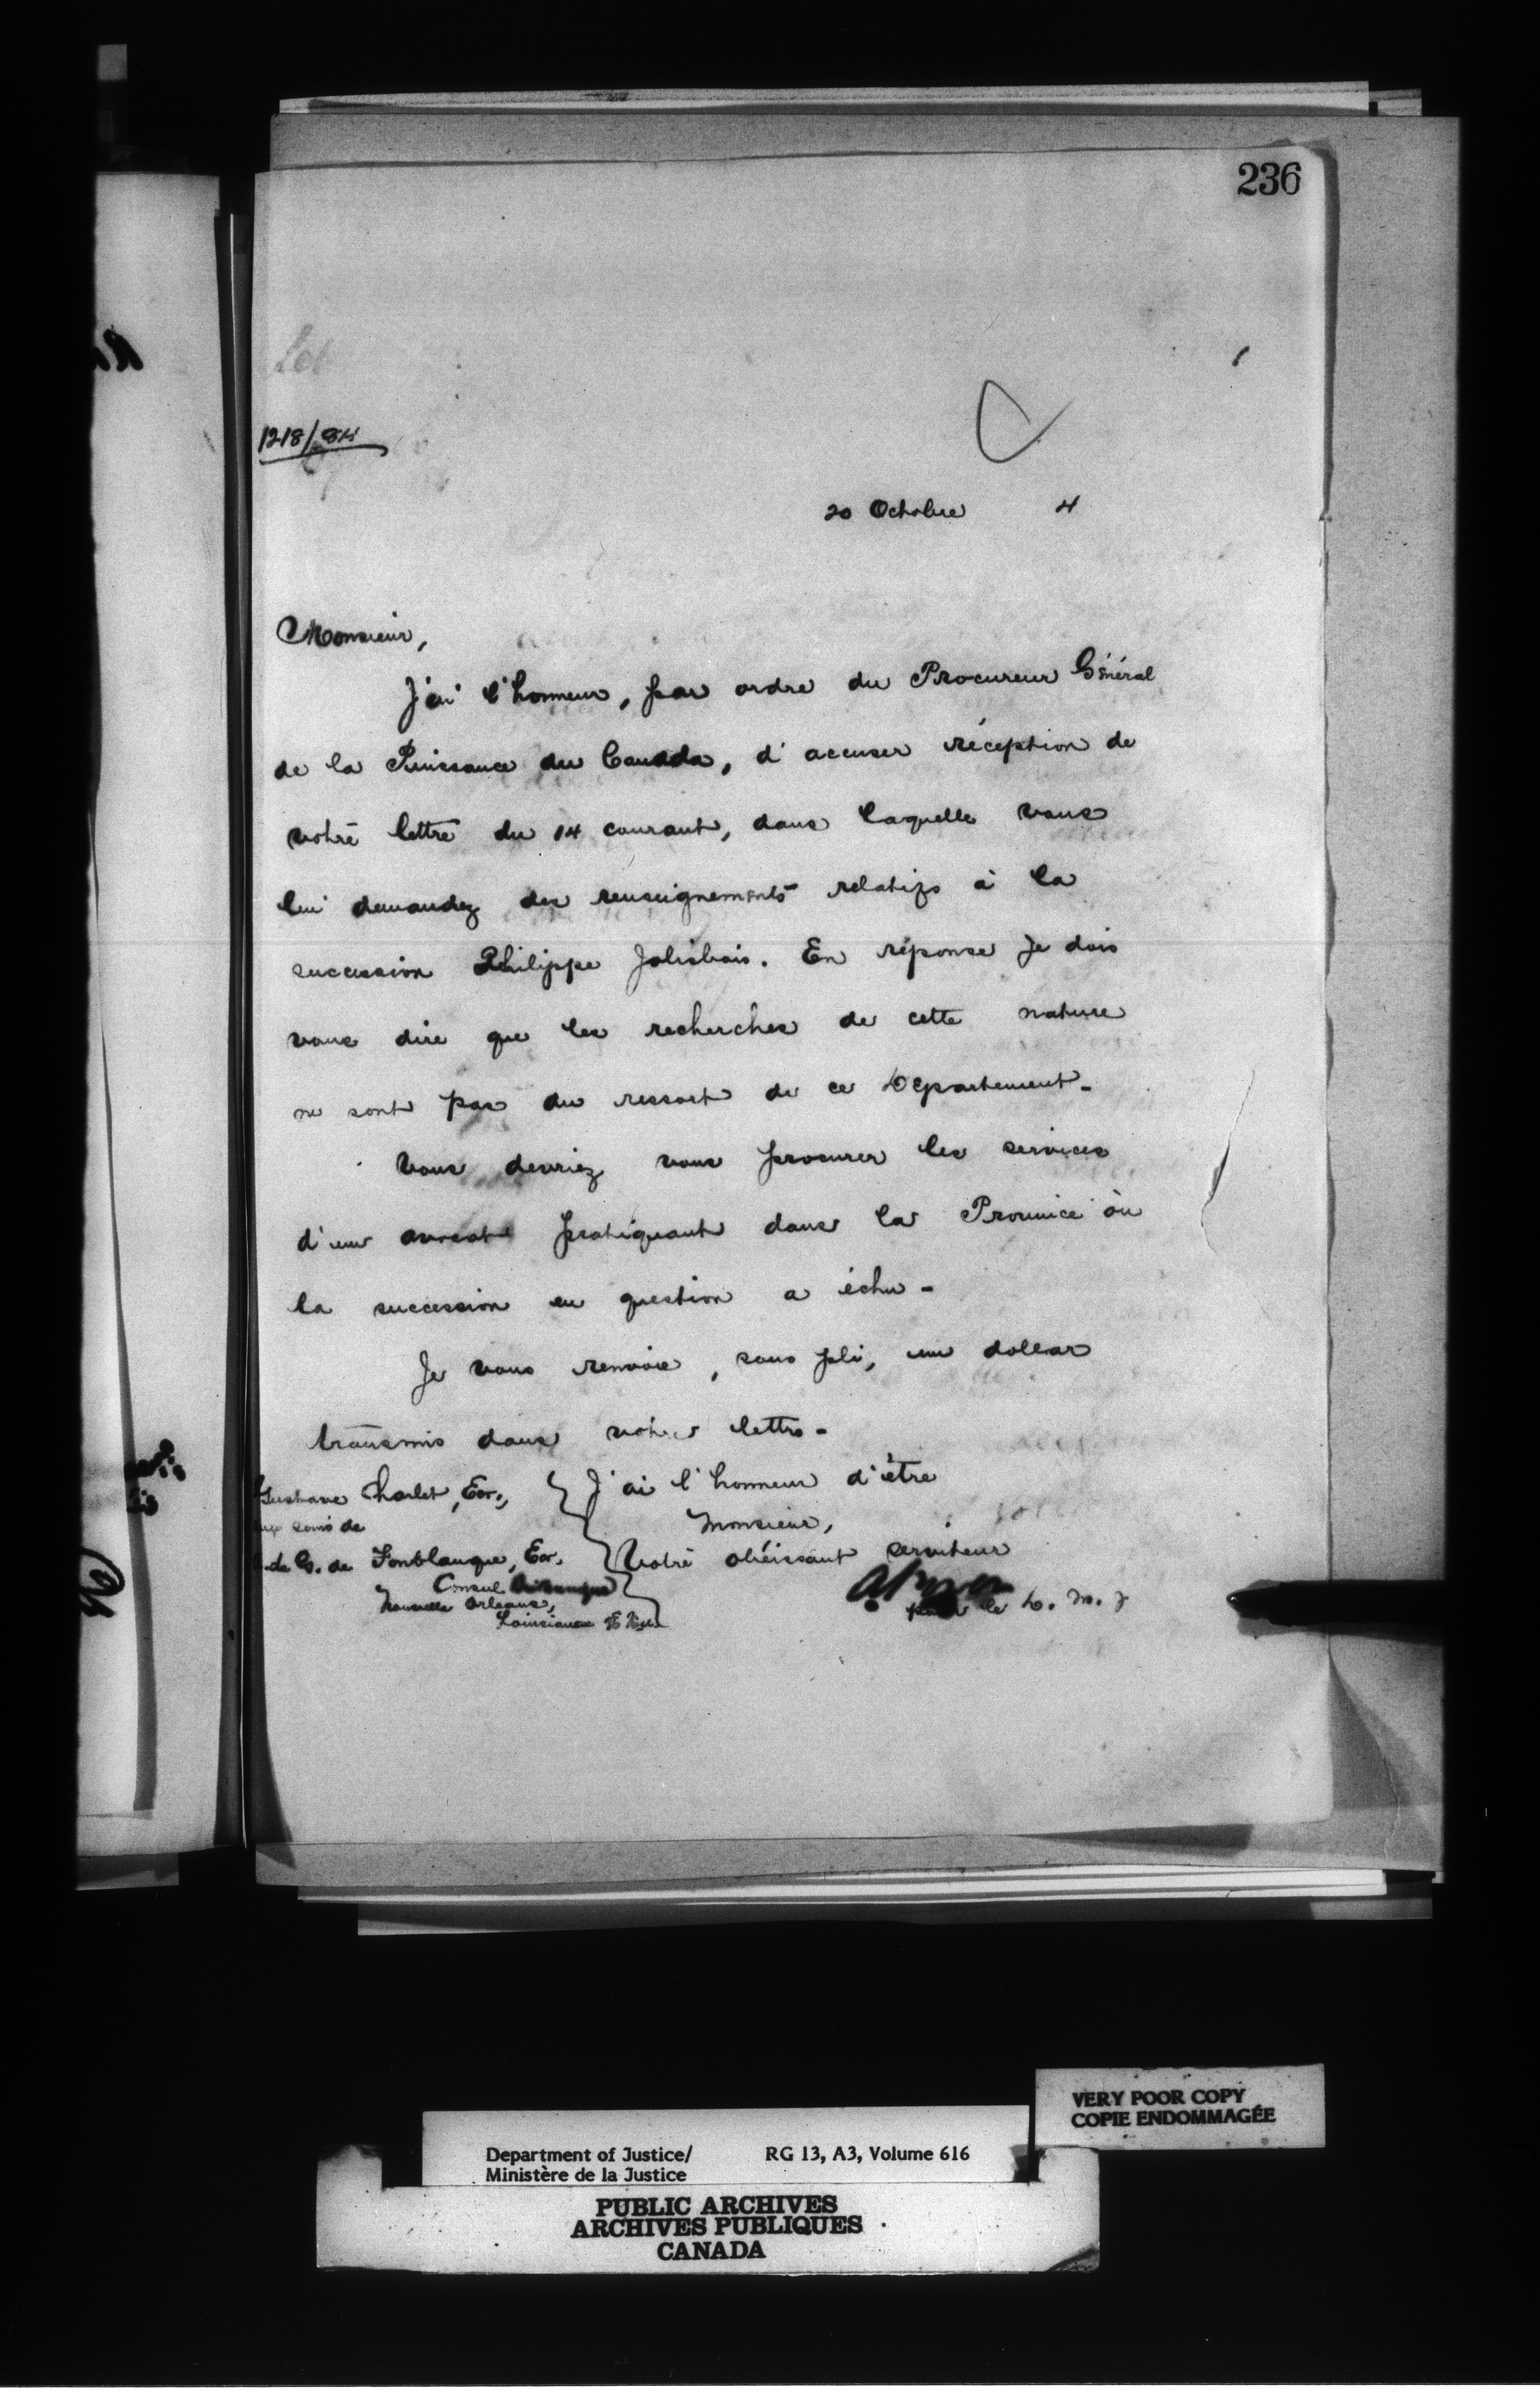 236
1218/84
20 Octobre 4
Monsieur,
J'ai l'honneur, par ordre du Procureur Général
de la Puissance du Canada, d'accuser réception de
votre lettre du 14 courant, dans laquelle vous
lui demandez des renseignements relatifs à la
succession Philippe Jolibois. En réponse je dois
vous dire que les recherches de cette nature
ne sont pas du ressort de ce Département-
Vous devriez vous procurer les services
d'un avocat pratiquant dans la Province où
la succession en question a échu-
Je vous renvoie, sous pli, une dollar
transmis dans votre lettre-
J'ai l'honneur d'être
Monsieur,
Votre obéissant serviteur
pour le D. M. J
Gustave Charlet, Ecr.,
aux soins de
de G. de Fonblanque, Ecr.
Consul Britannique
Nouvelle Orleans,
Louisiane
VERY POOR COPY
COPIE ENDOMMAGÉE
Department of Justice/ RG 13, A3, Volume 616
Ministère de la Justice
PUBLIC ARCHIVES
ARCHIVES PUBLIQUES
CANADA